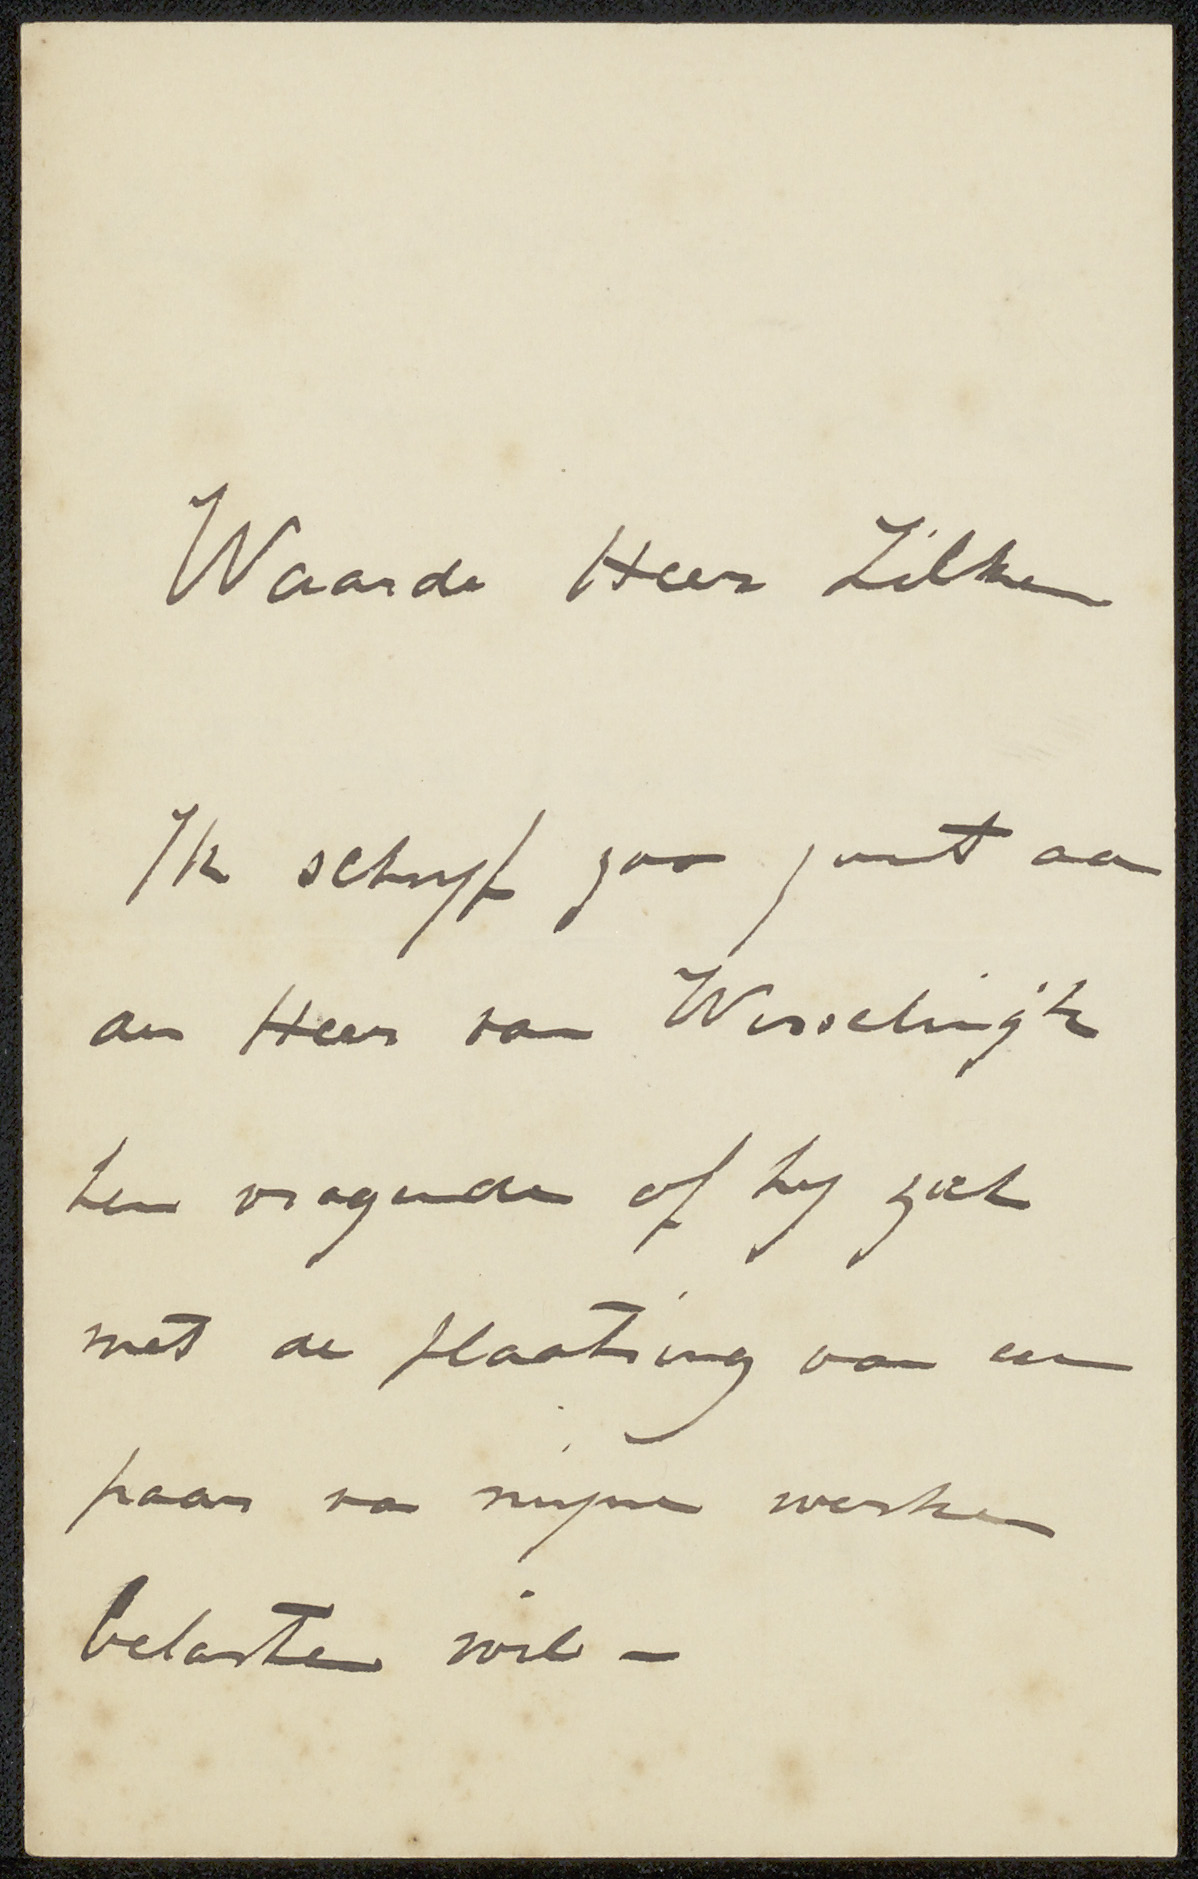 Waarde Heer Zilken
Ik schryf zoo juist aan
den Heer van Wisselingh
hem vragende of hy zich
met de plaatsing van een
paar van mijne werken
belasten wil –